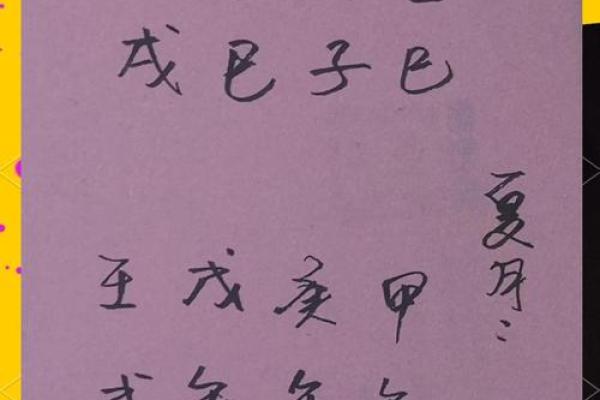 戌巳子巳
夏月:
壬戊癸甲